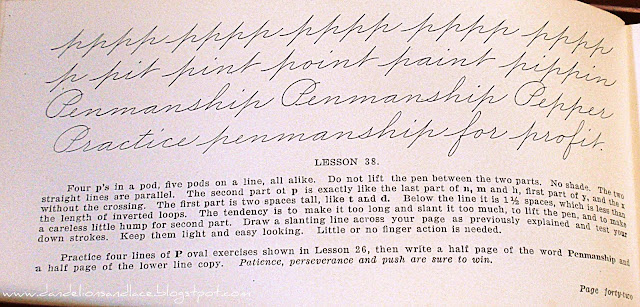 pppp pppp pppp pppp pppp
p pit pint point paint pippin
Penmanship Penmanship Pepper
Practice penmanship for profit.
LESSON 38.
Four p's in a pod, five pods on a line, all alike. Do not lift the pen between the two parts. No shade. The two
straight lines are parallel. The second part of p is exactly like the last part of n, m and h, first part of y, and the x
without the crossing. The first part is two spaces tall, like t and d. Below the line it is 1½ spaces, which is less than
the length of inverted loops. The tendency is to make it too long and slant it too much, to lift the pen, and to make
a careless little hump for second part. Draw a slanting line across your page as previously explained and test your
down strokes. Keep them light and easy looking. Little or no finger action is needed.
Practice four lines of P oval exercises shown in Lesson 26, then write a half page of the word Penmanship and
a half page of the lower line copy. Patience, perseverance and push are sure to win.
Page forty-two
www.dandelionsandlace.blogspot.com